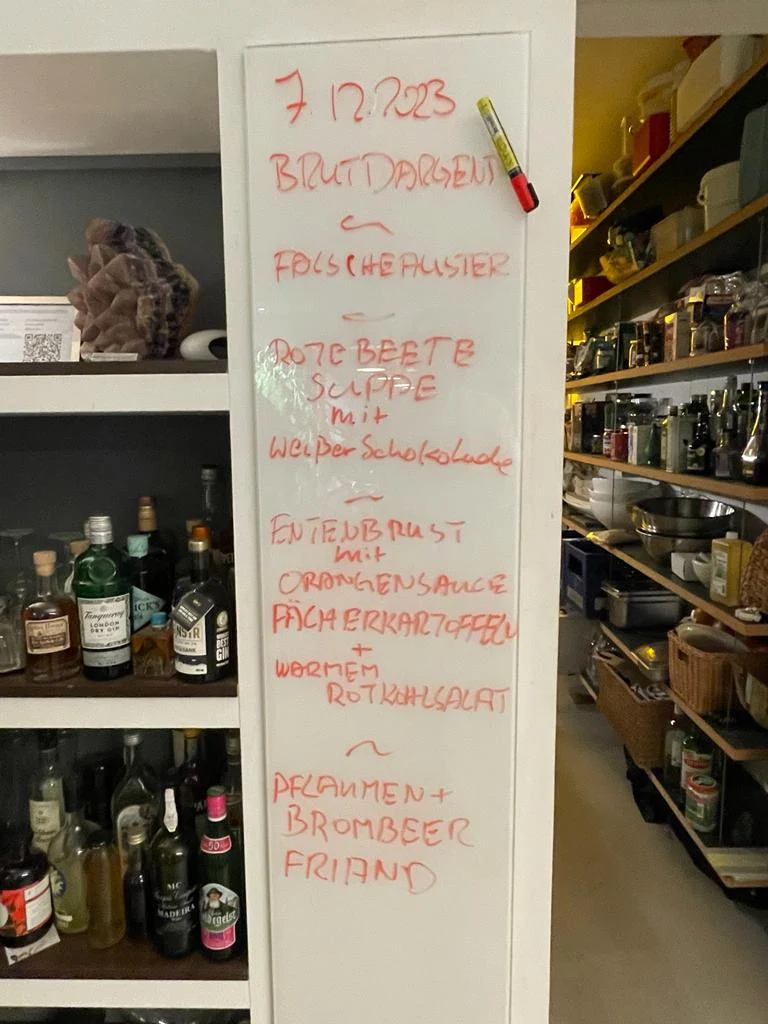 7.12.2023
BRUTDARGENT
~
FALSCHE AUSTER
~
ROTE BEETE
SUPPE
mit
weißer Schokolade
~
ENTENBRUST
mit
ORANGENSAUCE
FÄCHERKARTOFFELN
+
WARMEM
ROTKOHLSALAT
~
PFLAUMEN +
BROMBEER
FRIAND
Tanqueray
LONDON
DRY GIN
MC
MADEIRA
50